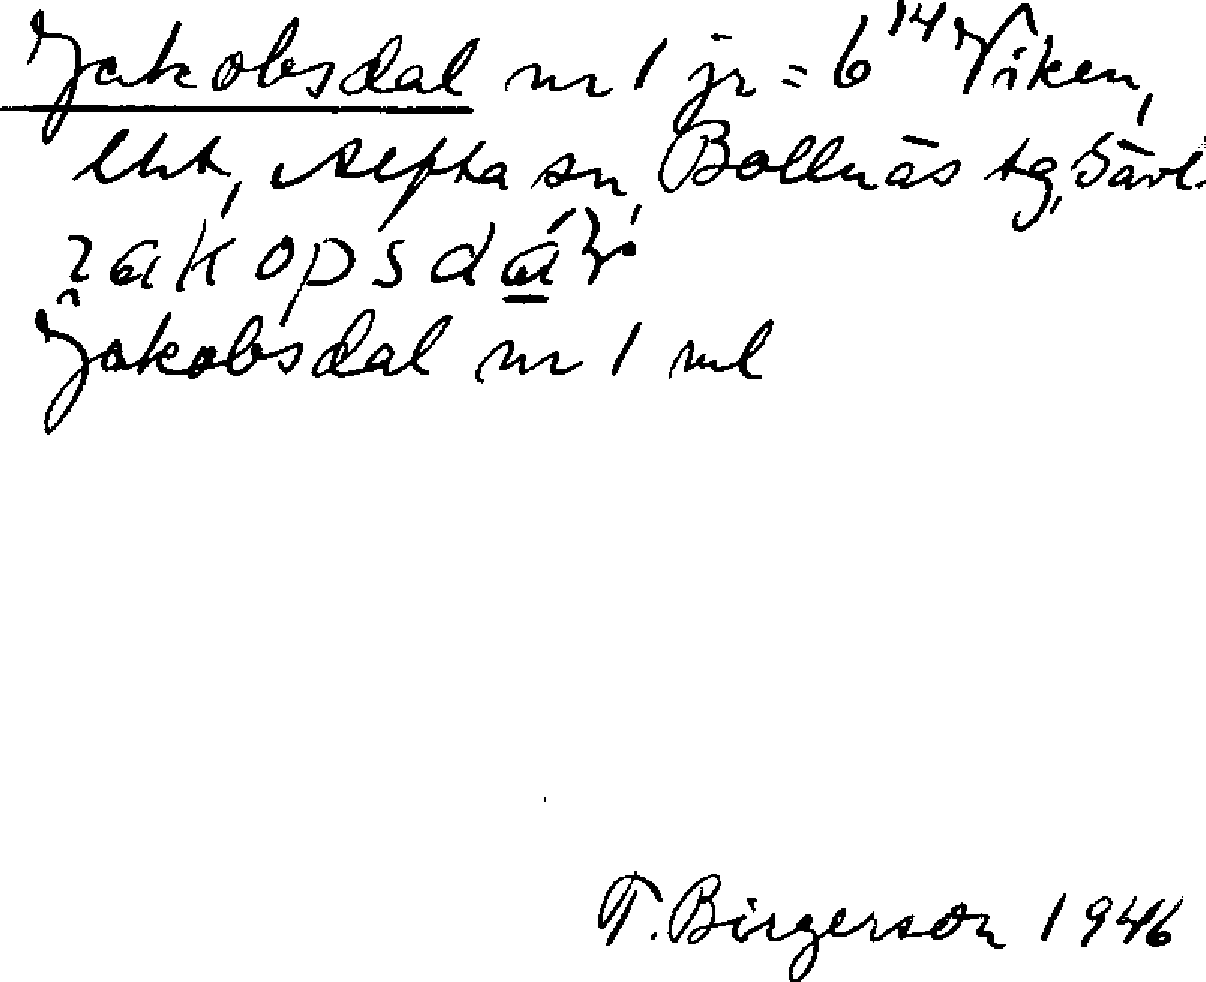 Jakobsdal nr 1 jr = 6¹⁴ Viken,
lht, Alfta sn, Bollnäs tg, Gävl.
Jakobsdal nr 1 ml
T. Birgerson 1946